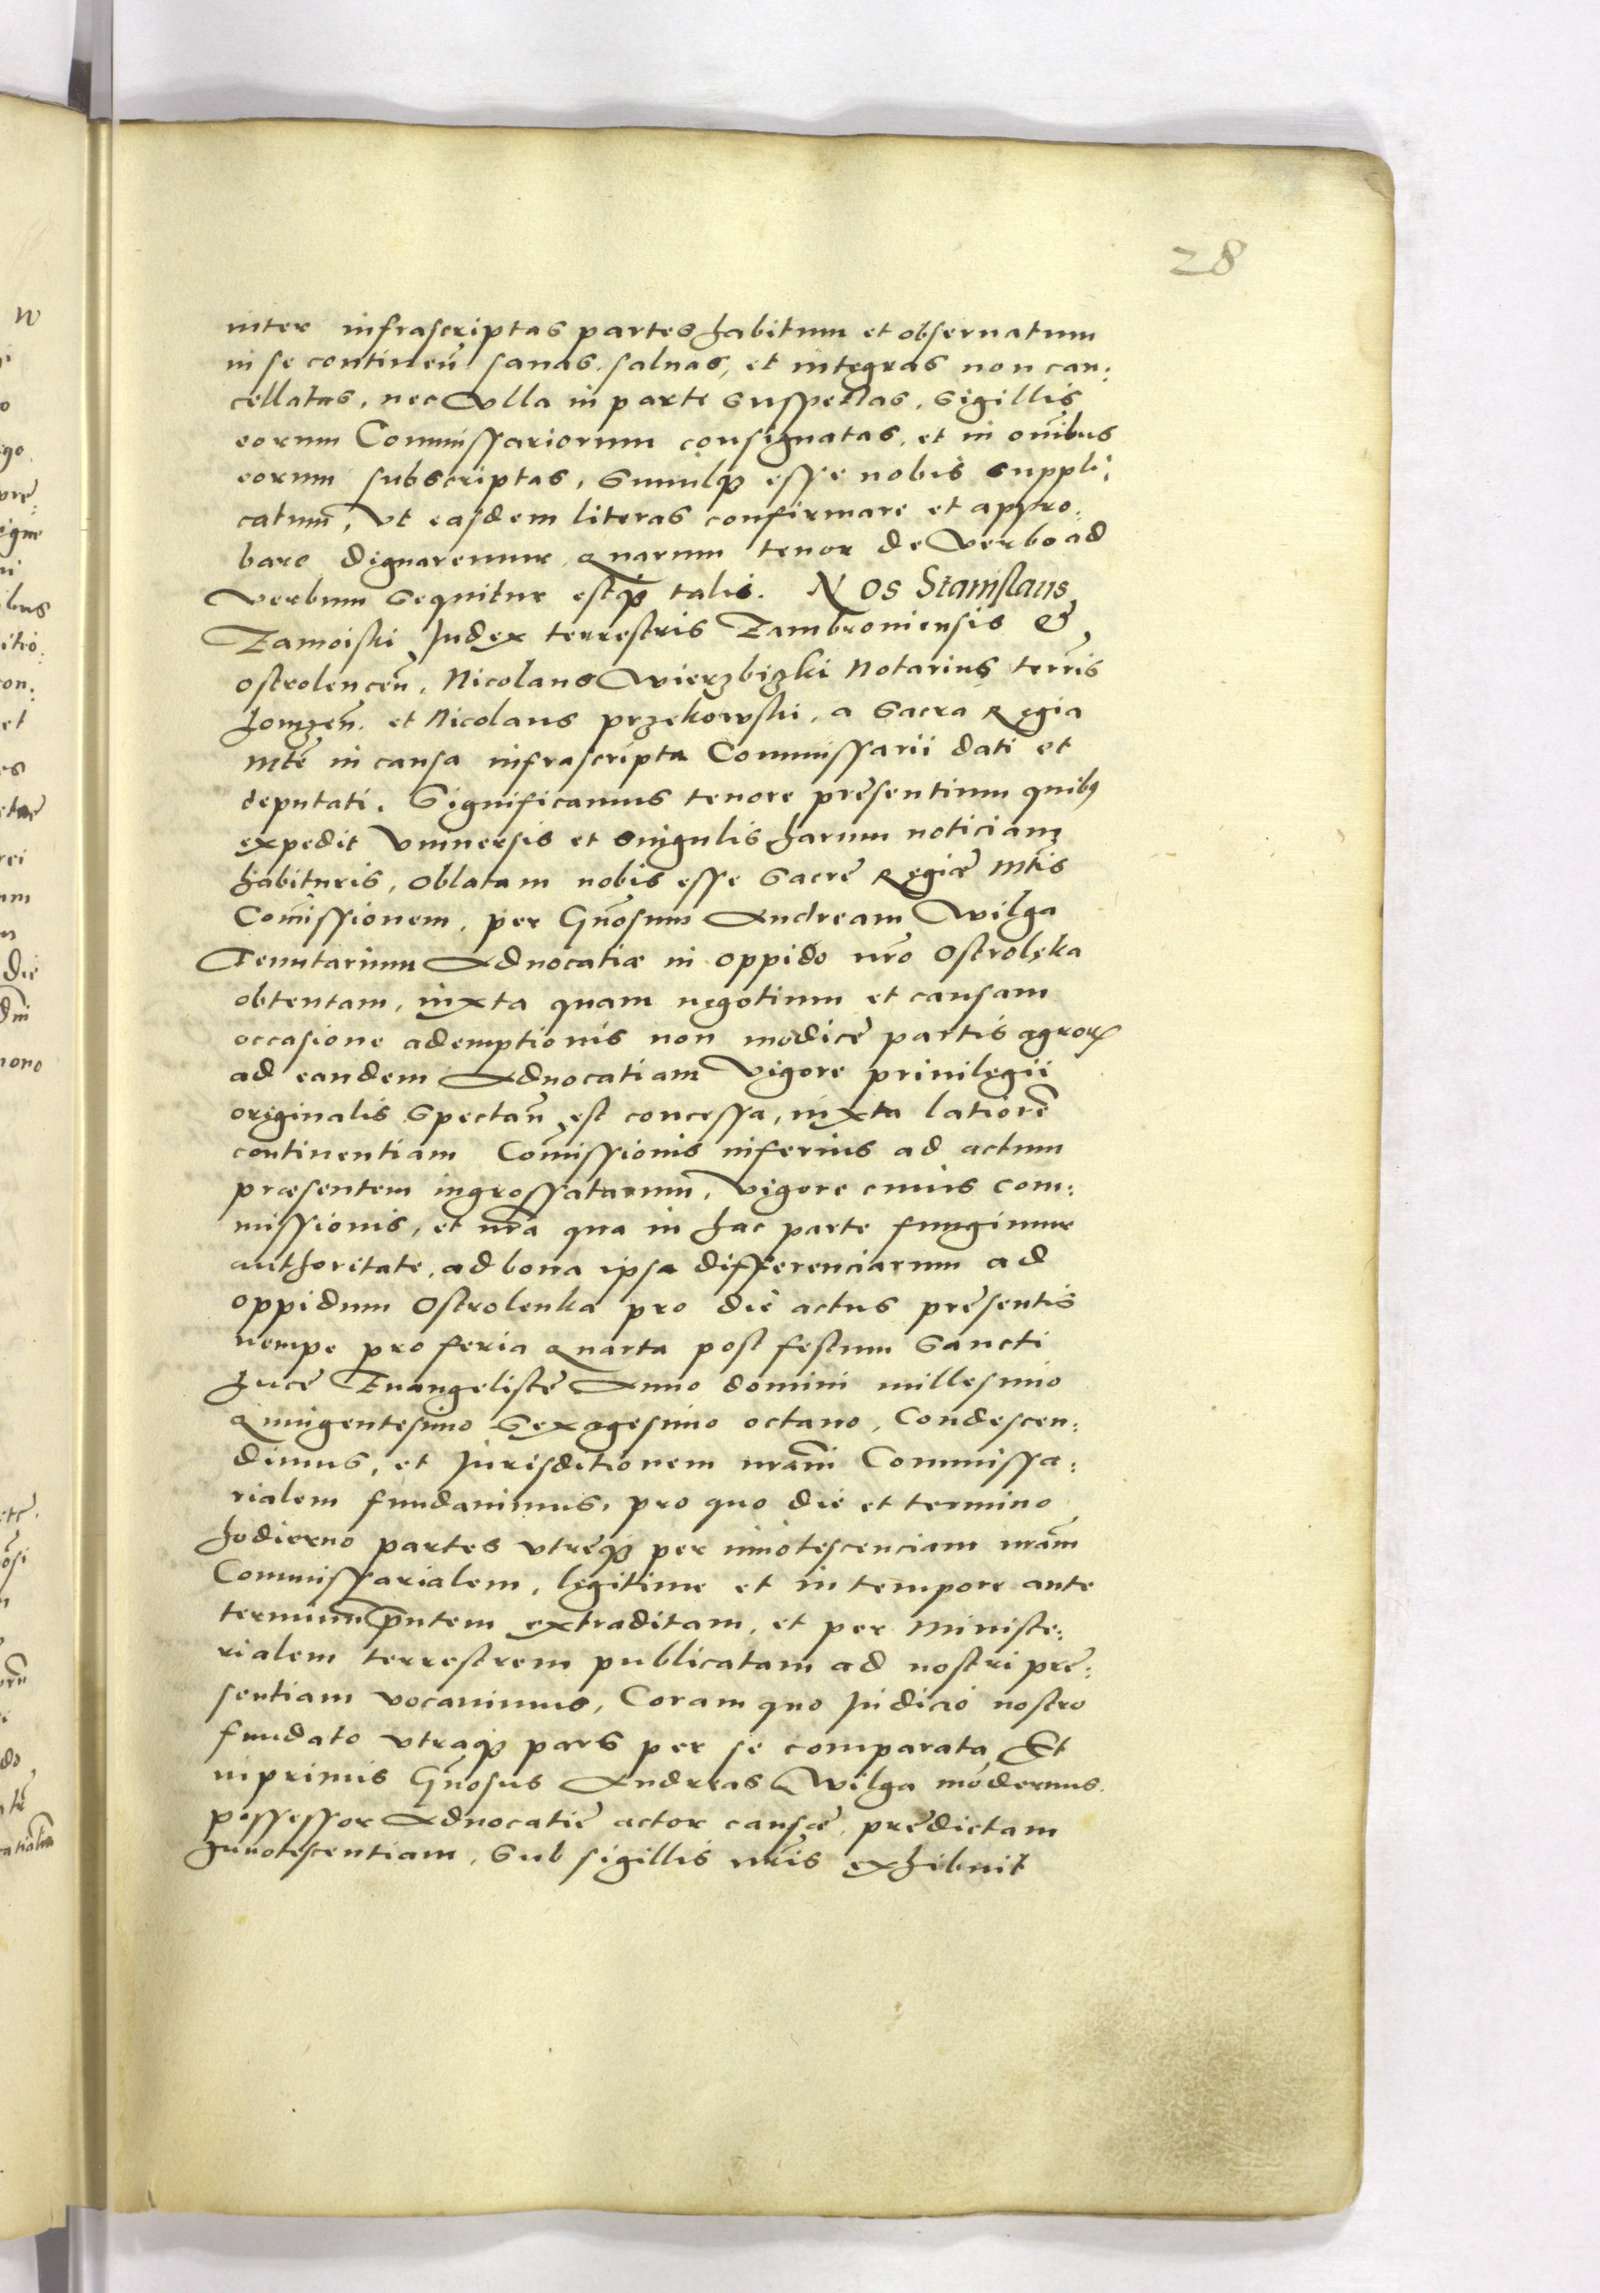 28
inter infrascriptas partes habitum et obseruatum
in se continen̄ sanas saluas, et integras non can:
cellatas, nec Vlla in parte suspectas, sigillis
eorum Commissariorum consignatas, et in om̄ibus
eorum subscriptas, simulq₃ esse nobis suppli:
catum̄, Vt easdem literas confirmare et appro:
bare dignaremur, Quarum tenor de Verbo ad
Verbum sequitur estq₃ talis. Nos Stanislaus
Zamoiski Judex terrestris Zambroniensis &
ostrolencen̄, Nicolaus Wierzbizki Notarius ter̄ris
Lomzen̄. et Nicolaus przekowski, a Sacra Regia
Mt̄e in causa infrascripta Commissarii dati et
deputati. Significamus tenore presentium quibꝰ
expedit Vniuersis et singulis harum noticiam
habituris, oblatam nobis esse Sacrę Regiæ Mt̄is
Com̄issionem, per Gn̄osum Andream Wilga
Tenutarium Aduocatiæ in oppido nr̄o Ostrolęka
obtentam, iuxta quam negotium et causam
occasione ademptionis non modicę partis agroꝝ
ad eandem Aduocatiam Vigore priuilegii
originalis spectan̄ est concessa, iuxta latiorē
continentiam Com̄issionis inferius ad actum
præsentem ingrossatarum̄, Vigore cuius com:
missionis, et nr̄a qua in hac parte fungimur
authoritate, ad bona ipsa differenciarum ad
oppidum Ostrolenka pro die actus presentis
nempe pro feria Quarta post festum Sancti
Lucę Euangelistę Anno domini millesimo
Quingentesimo Sexagesimo octauo, Condescen:
dimus, et Jurisditionem nr̄am Commissa:
rialem fundauimus, pro quo die et termino
hodierno partes vtręq₃ per innotescenciam nr̄am
Commissarialem, legitime et in tempore ante
terminum pn̄tem extraditam, et per Ministe:
rialem terrestrem publicatam ad nostri prę:
sentiam vocauimus, Coram quo Judicio nostro
fundato vtraq₃ pars per se comparata, Et
inprimis Gn̄osus Andreas Wilga modernus
possessor Aduocatię actor causæ, prędictam
Innotescentiam, sub sigillis nr̄is exhibuit